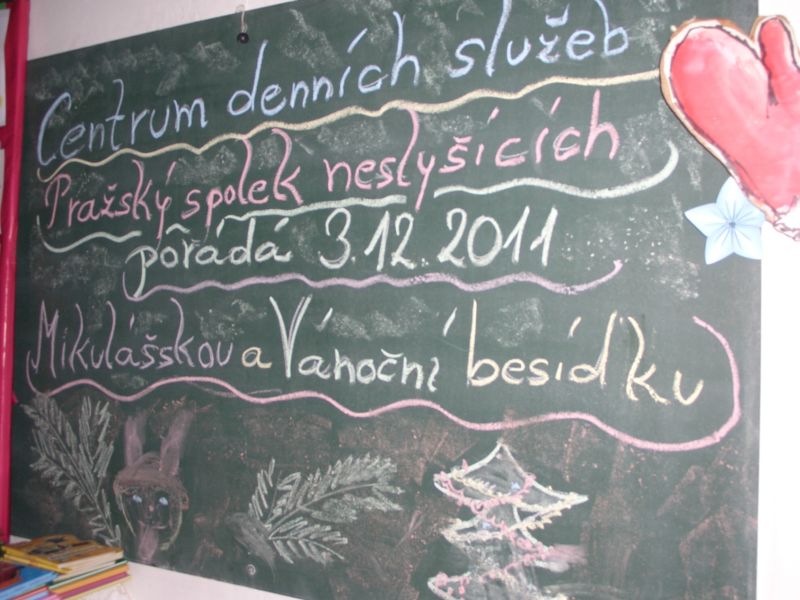 Centrum denních služeb
Pražský spolek neslyšících
pořádá 3.12.2011
Mikulášskou a Vánoční besídku